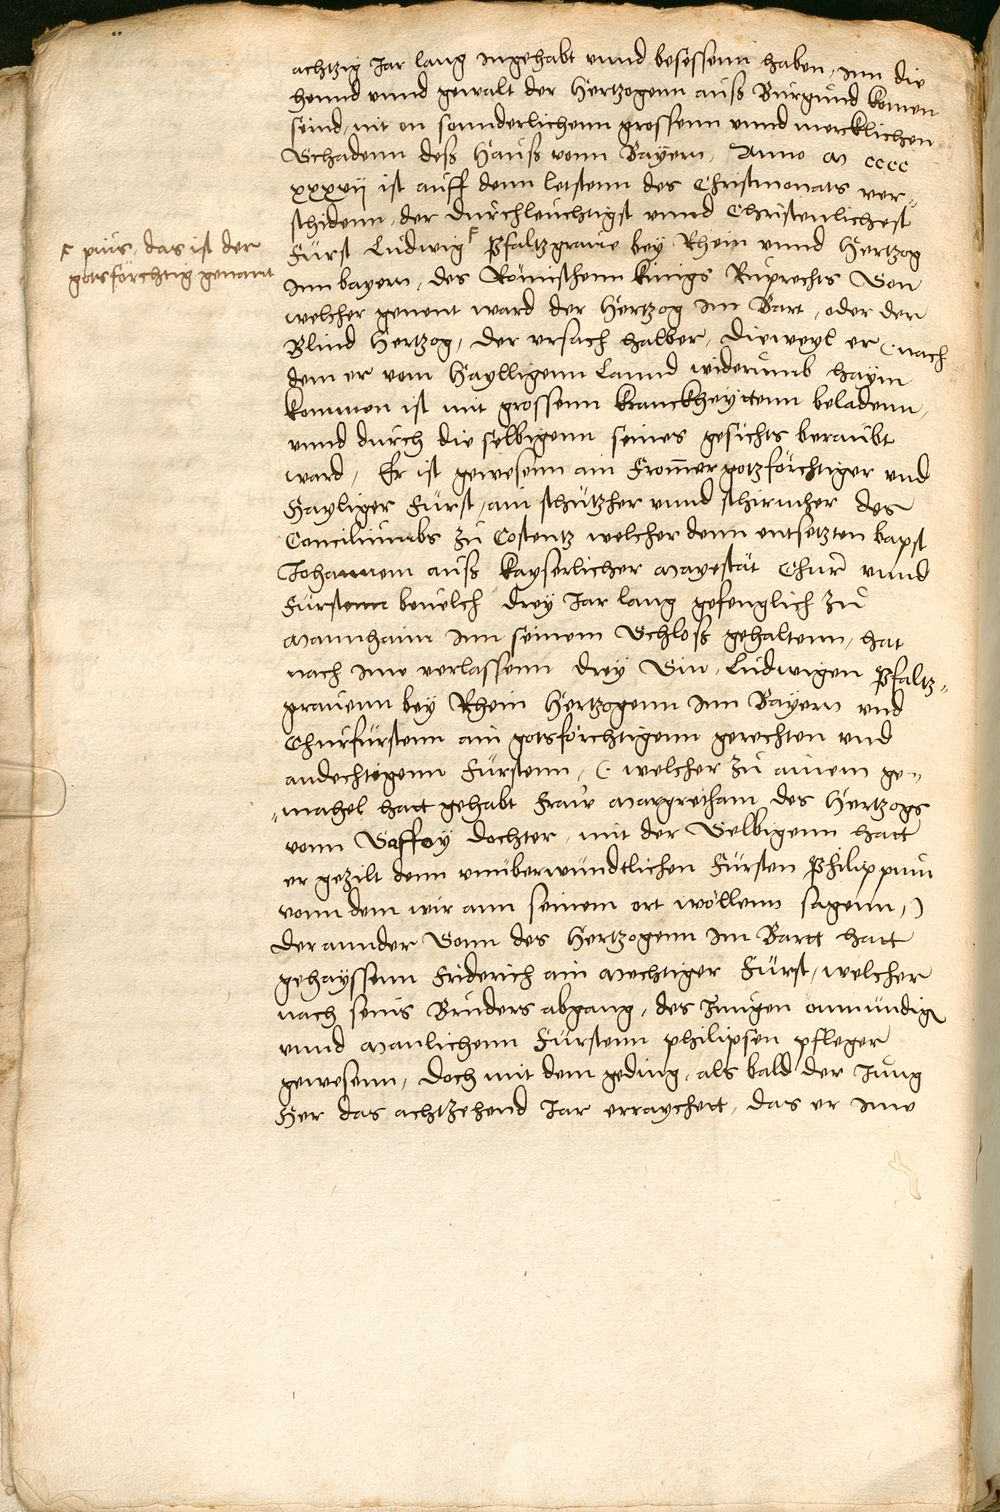 achtzig Jar lang Ingehabt vnnd besessenn haben, Inn die
hennd vnnd gewalt der Hertzogenn auß Burgund komen
seind, nit on sonnderlichenn grossenn vnnd mercklichen
Schadenn deß Hauß vonn Bayern, Anno M cccc
xxxvij ist auff denn letstenn des Christmonats ver„
schidenn, der Durchleuchtigst vnnd Christennlichest
Fürst Ludwig ┌ Pfaltzgraue bey Rhein vnnd Hertzog
┌ pius, das ist der
gotsforchtig genant
Inn bayern, des Römischenn kinigs Ruprechts Son
welcher genent ward der Hertzog im Bart, oder der
Blind Hertzog, Der vrsach halber, Dieweyl er (: nach
dem er vom Haylligenn Lannd widerumb haym
kommen ist mit grossenn kranckheyttenn beladenn,
vnnd durch die selbigenn seines gesichts beraubt
ward, Er ist gewesenn ain Fromer gotzförchtiger vnd
Hayliger Fürst, ain schützher vnnd schirmher des
Conciliumbs zu Costentz welcher denn entsetzten bapst
Johannem auß kayserlicher Mayestät Chur vnnd
Fürstenn beuelch Drey Jar lang gefenglich zu
Mannhaim Inn seinem Schloß gehaltenn, hat
nach Ime verlassenn Drey Sin, Ludwigen Pfaltz„
grauenn bey Rhein Hertzogenn Inn Bayern vnd
Churfürstenn ain gotsförchtigenn gerechten vnd
andechtigenn Fürstenn, (: welcher zu ainem ge„
„mahel hatt gehabt Fraw Margretham des Hertzogs
vonn Saffoy dochter, mit der Selbigenn hatt
er gezilt denn vnüberwündtlichen Fürsten Philippum
vonn dem wir ann seinem ort wöllenn sagenn,)
Der annder Sonn des Hertzogenn im Bartt hatt
gehayssenn Friderich ain Mechtiger Fürst, welcher
nach seins Bruders abgang, des Jungen onmündig
vnnd Manlichenn Fürstenn philipsen pfleger
gewesenn, Doch mit dem geding, als bald der Jung
Her das achtzehend Jar erraychett, das er Ime